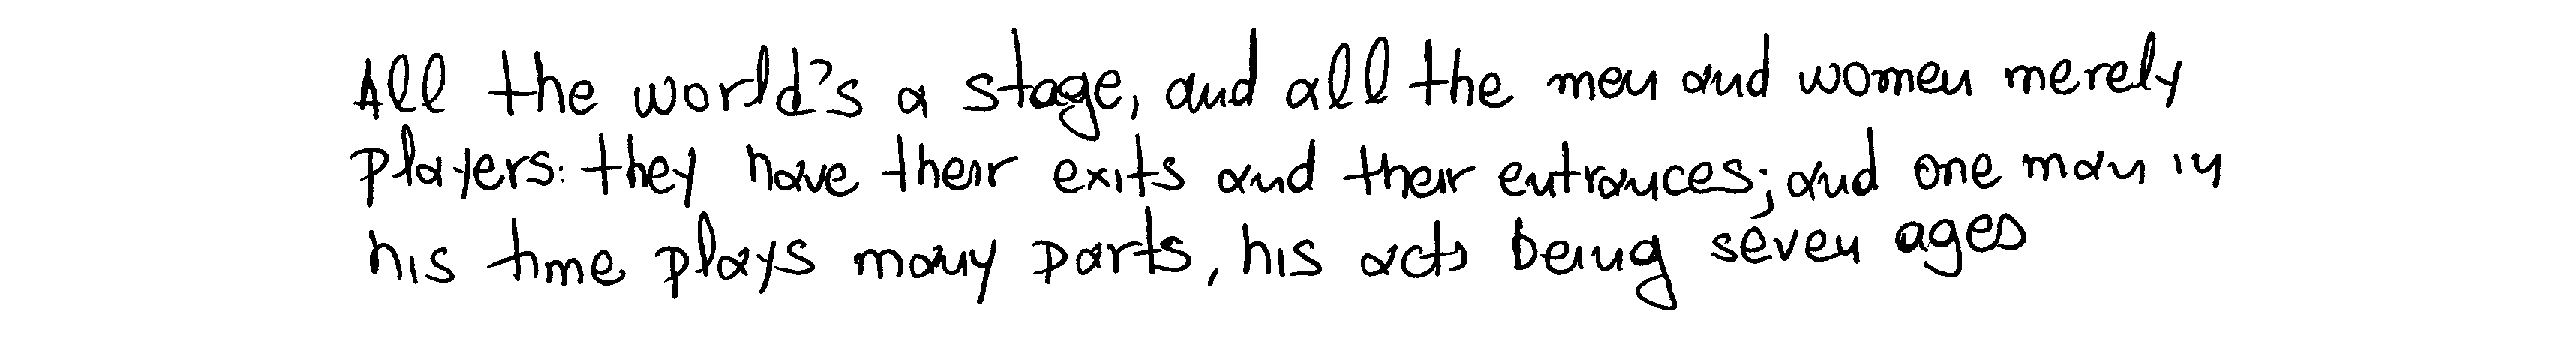 All the world's a stage, and all the men and women merely
players: they have their exits and their entrances; and one man in
his time plays many parts, his acts being seven ages